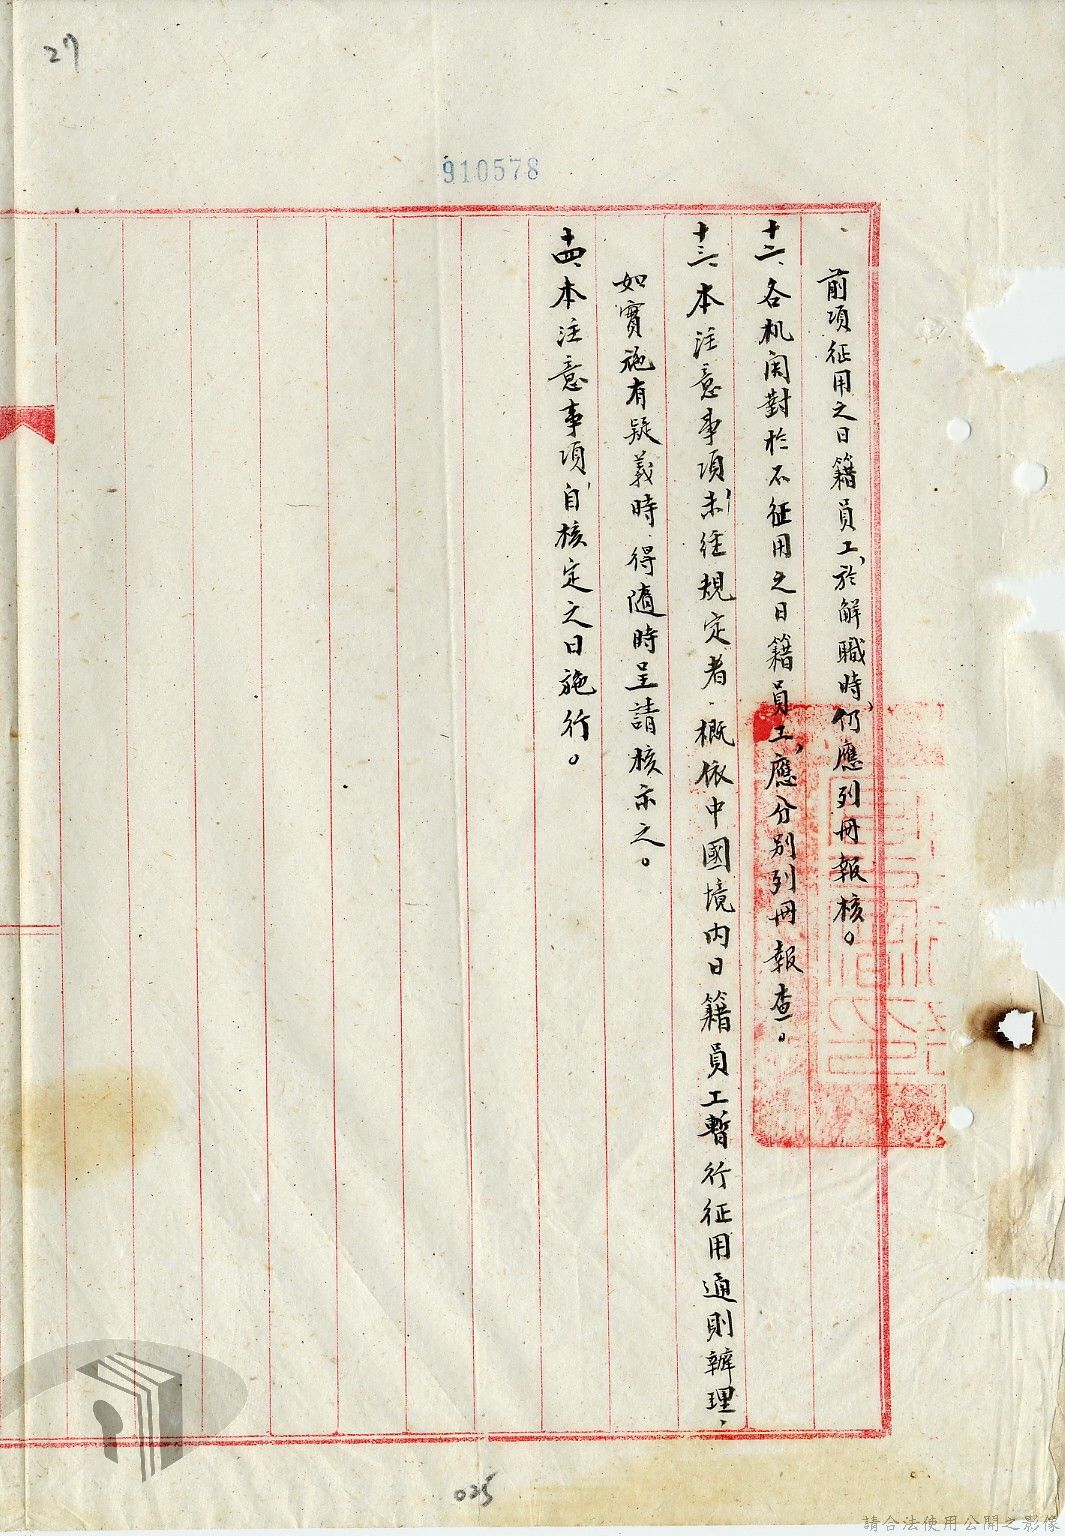 27
910578
前項征用之日籍員工，於解職時，仍應列冊報核。
十二、各机関對於不征用之日籍員工，應分別列冊報查。
十三、本注意事項未經規定者，概依中國境内日籍員工暫行征用通則辦理，
如實施有疑義時，得隨時呈請核示之。
十四、本注意事項自核定之日施行。
025
請合法使用公開之影像